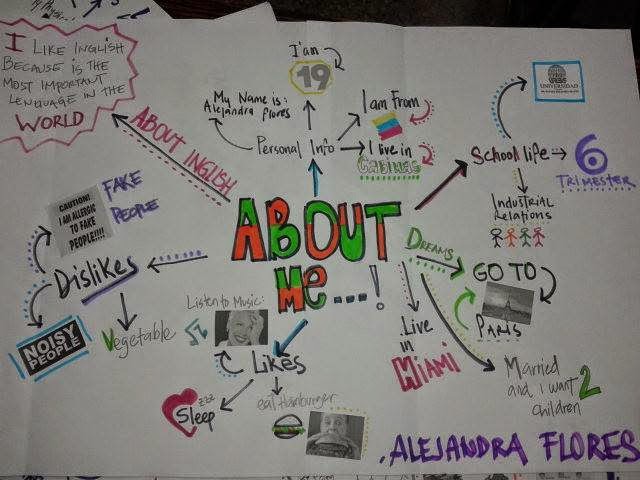 I LIKE INGLISH
BECAUSE IS THE
MOST IMPORTANT
LENGUAGE IN THE
WORLD
ABOUT INGLISH
I'am
19
My Name is:
Alejandra Flores
Personal Info
I am From
I live in
Cabimas
School life
UNIVERSIDAD
6
TRIMESTER
INDUSTRIAL
RELATIONS
ABOUT
ME...!
DREAMS
GO TO
PARIS
Live
in
MIAMI
Married
and i want 2
children
Dislikes
CAUTION!
I AM ALLERGIC
TO FAKE
PEOPLE!!!!
FAKE
PEOPLE
NOISY
PEOPLE
Vegetable
Likes
Listen to Music:
Sleep
zzz
eat Hamburger
.ALEJANDRA FLORES